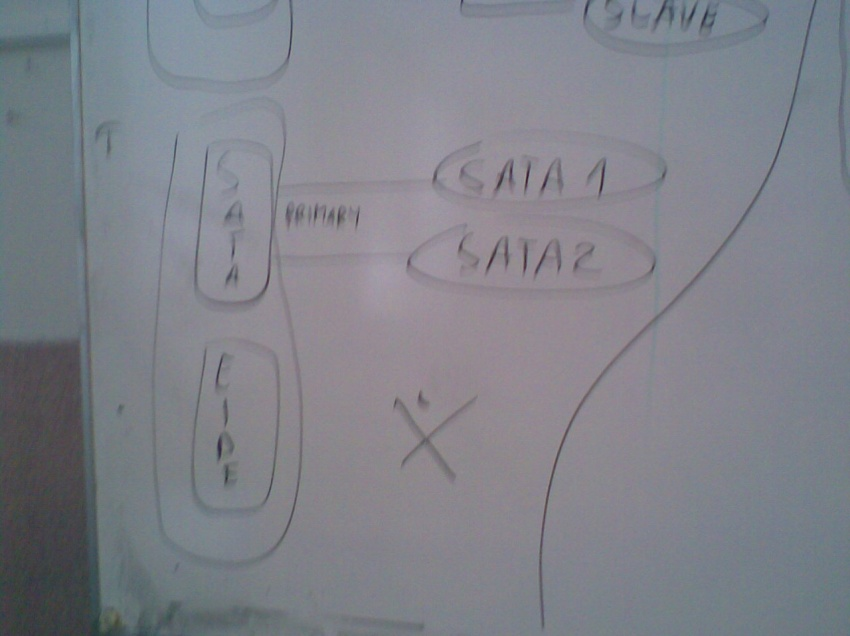 SLAVE
T
SATA
PRIMARY
SATA 1
SATA2
EIDE
X